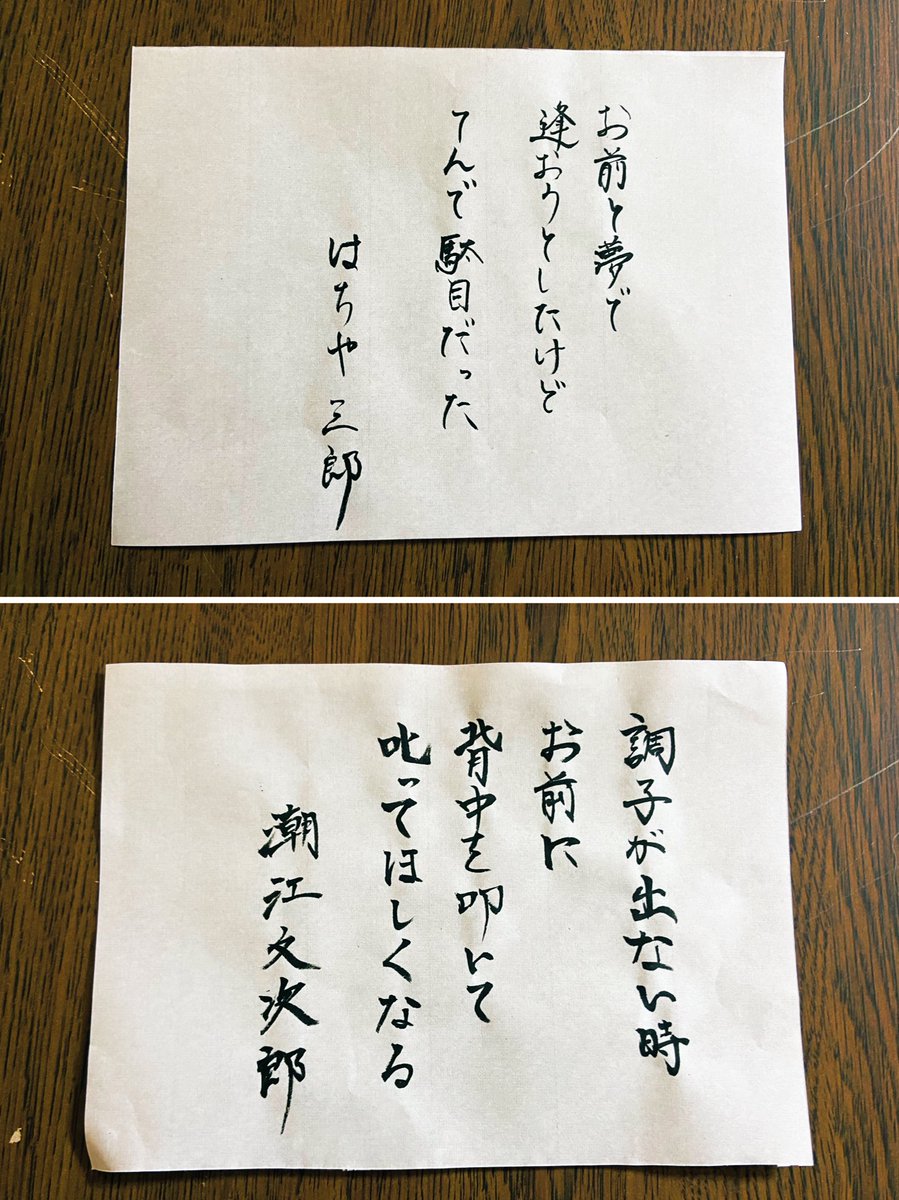 お前と夢で
逢おうとしたけど
てんで駄目だった
はちや三郎
調子が出ない時
お前に
背中を叩いて
叱ってほしくなる
潮江文次郎